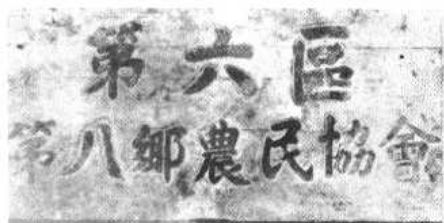 第六區
第八鄉農民協會